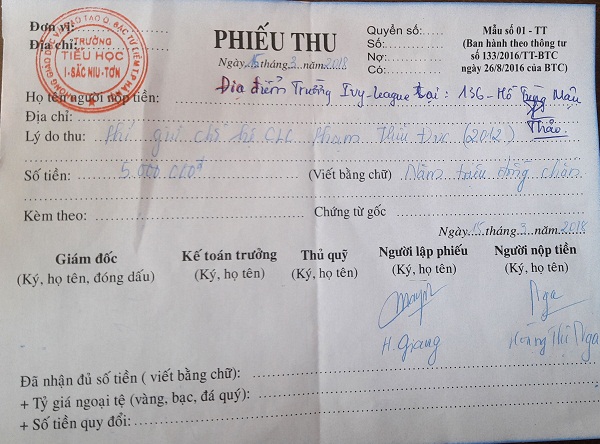 Đơn vị:
Địa chỉ:
PHÒNG GIÁO DỤC VÀ ĐÀO TẠO Q. BẮC TỪ LIÊM TP HÀ NỘI
TRƯỜNG
TIỂU HỌC
I-SẮC NIU-TƠN
PHIẾU THU
Ngày 15 tháng 3 năm 2018
Quyển số:
Số:
Nợ:
Có:
Mẫu số 01 - TT
(Ban hành theo thông tư
số 133/2016/TT-BTC
ngày 26/8/2016 của BTC)
Họ tên người nộp tiền: Địa điểm Trường Ivy-league tại: 136 - Hồ Tùng Mậu
Địa chỉ:
Thảo
Lý do thu: Phí giữ chỗ hệ CLC Phạm (2012)
Số tiền: 5.000.000đ (Viết bằng chữ) Năm triệu đồng chẵn
Kèm theo: Chứng từ gốc
Ngày 15 tháng 3 năm 2018
Giám đốc Kế toán trưởng Thủ quỹ Người lập phiếu Người nộp tiền
(Ký, họ tên, đóng dấu) (Ký, họ tên) (Ký, họ tên) (Ký, họ tên) (Ký, họ tên)
Nga
H. Giang Hoàng Thị Nga
Đã nhận đủ số tiền ( viết bằng chữ):
+ Tỷ giá ngoại tệ (vàng, bạc, đá quý):
+ Số tiền quy đổi: